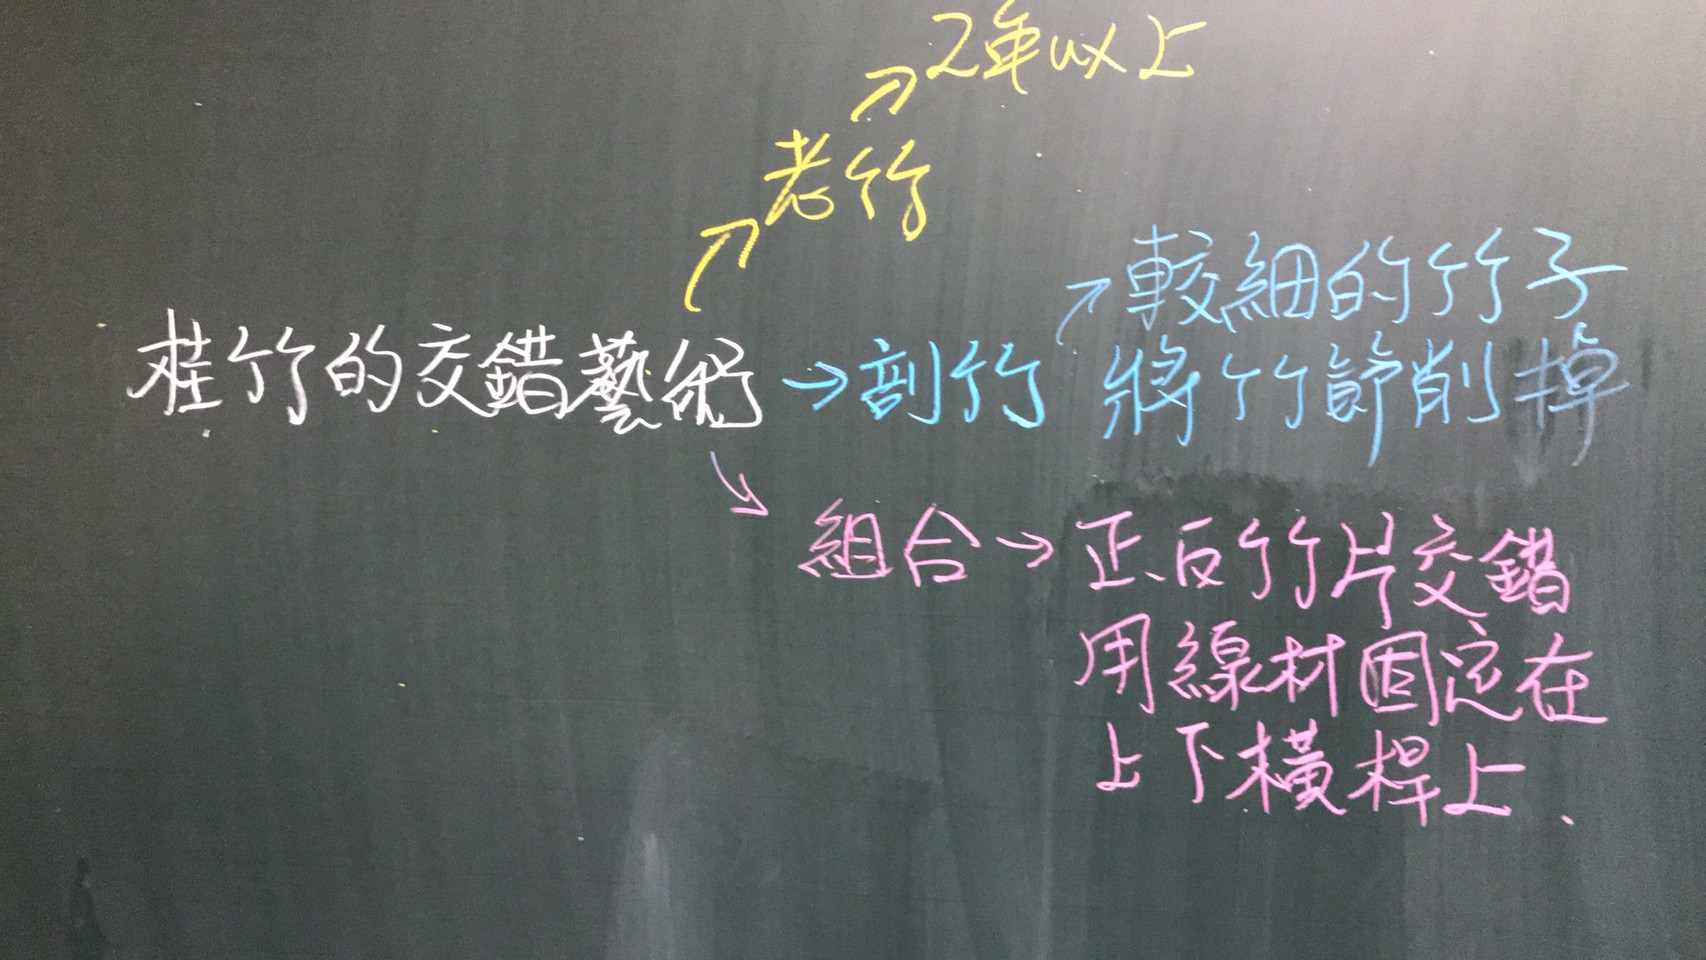 2年以上
老竹
較細的竹子
桂竹的交錯藝術→剖竹 將竹節削掉
組合→正、反竹片交錯
用線材固定在
上下橫桿上.